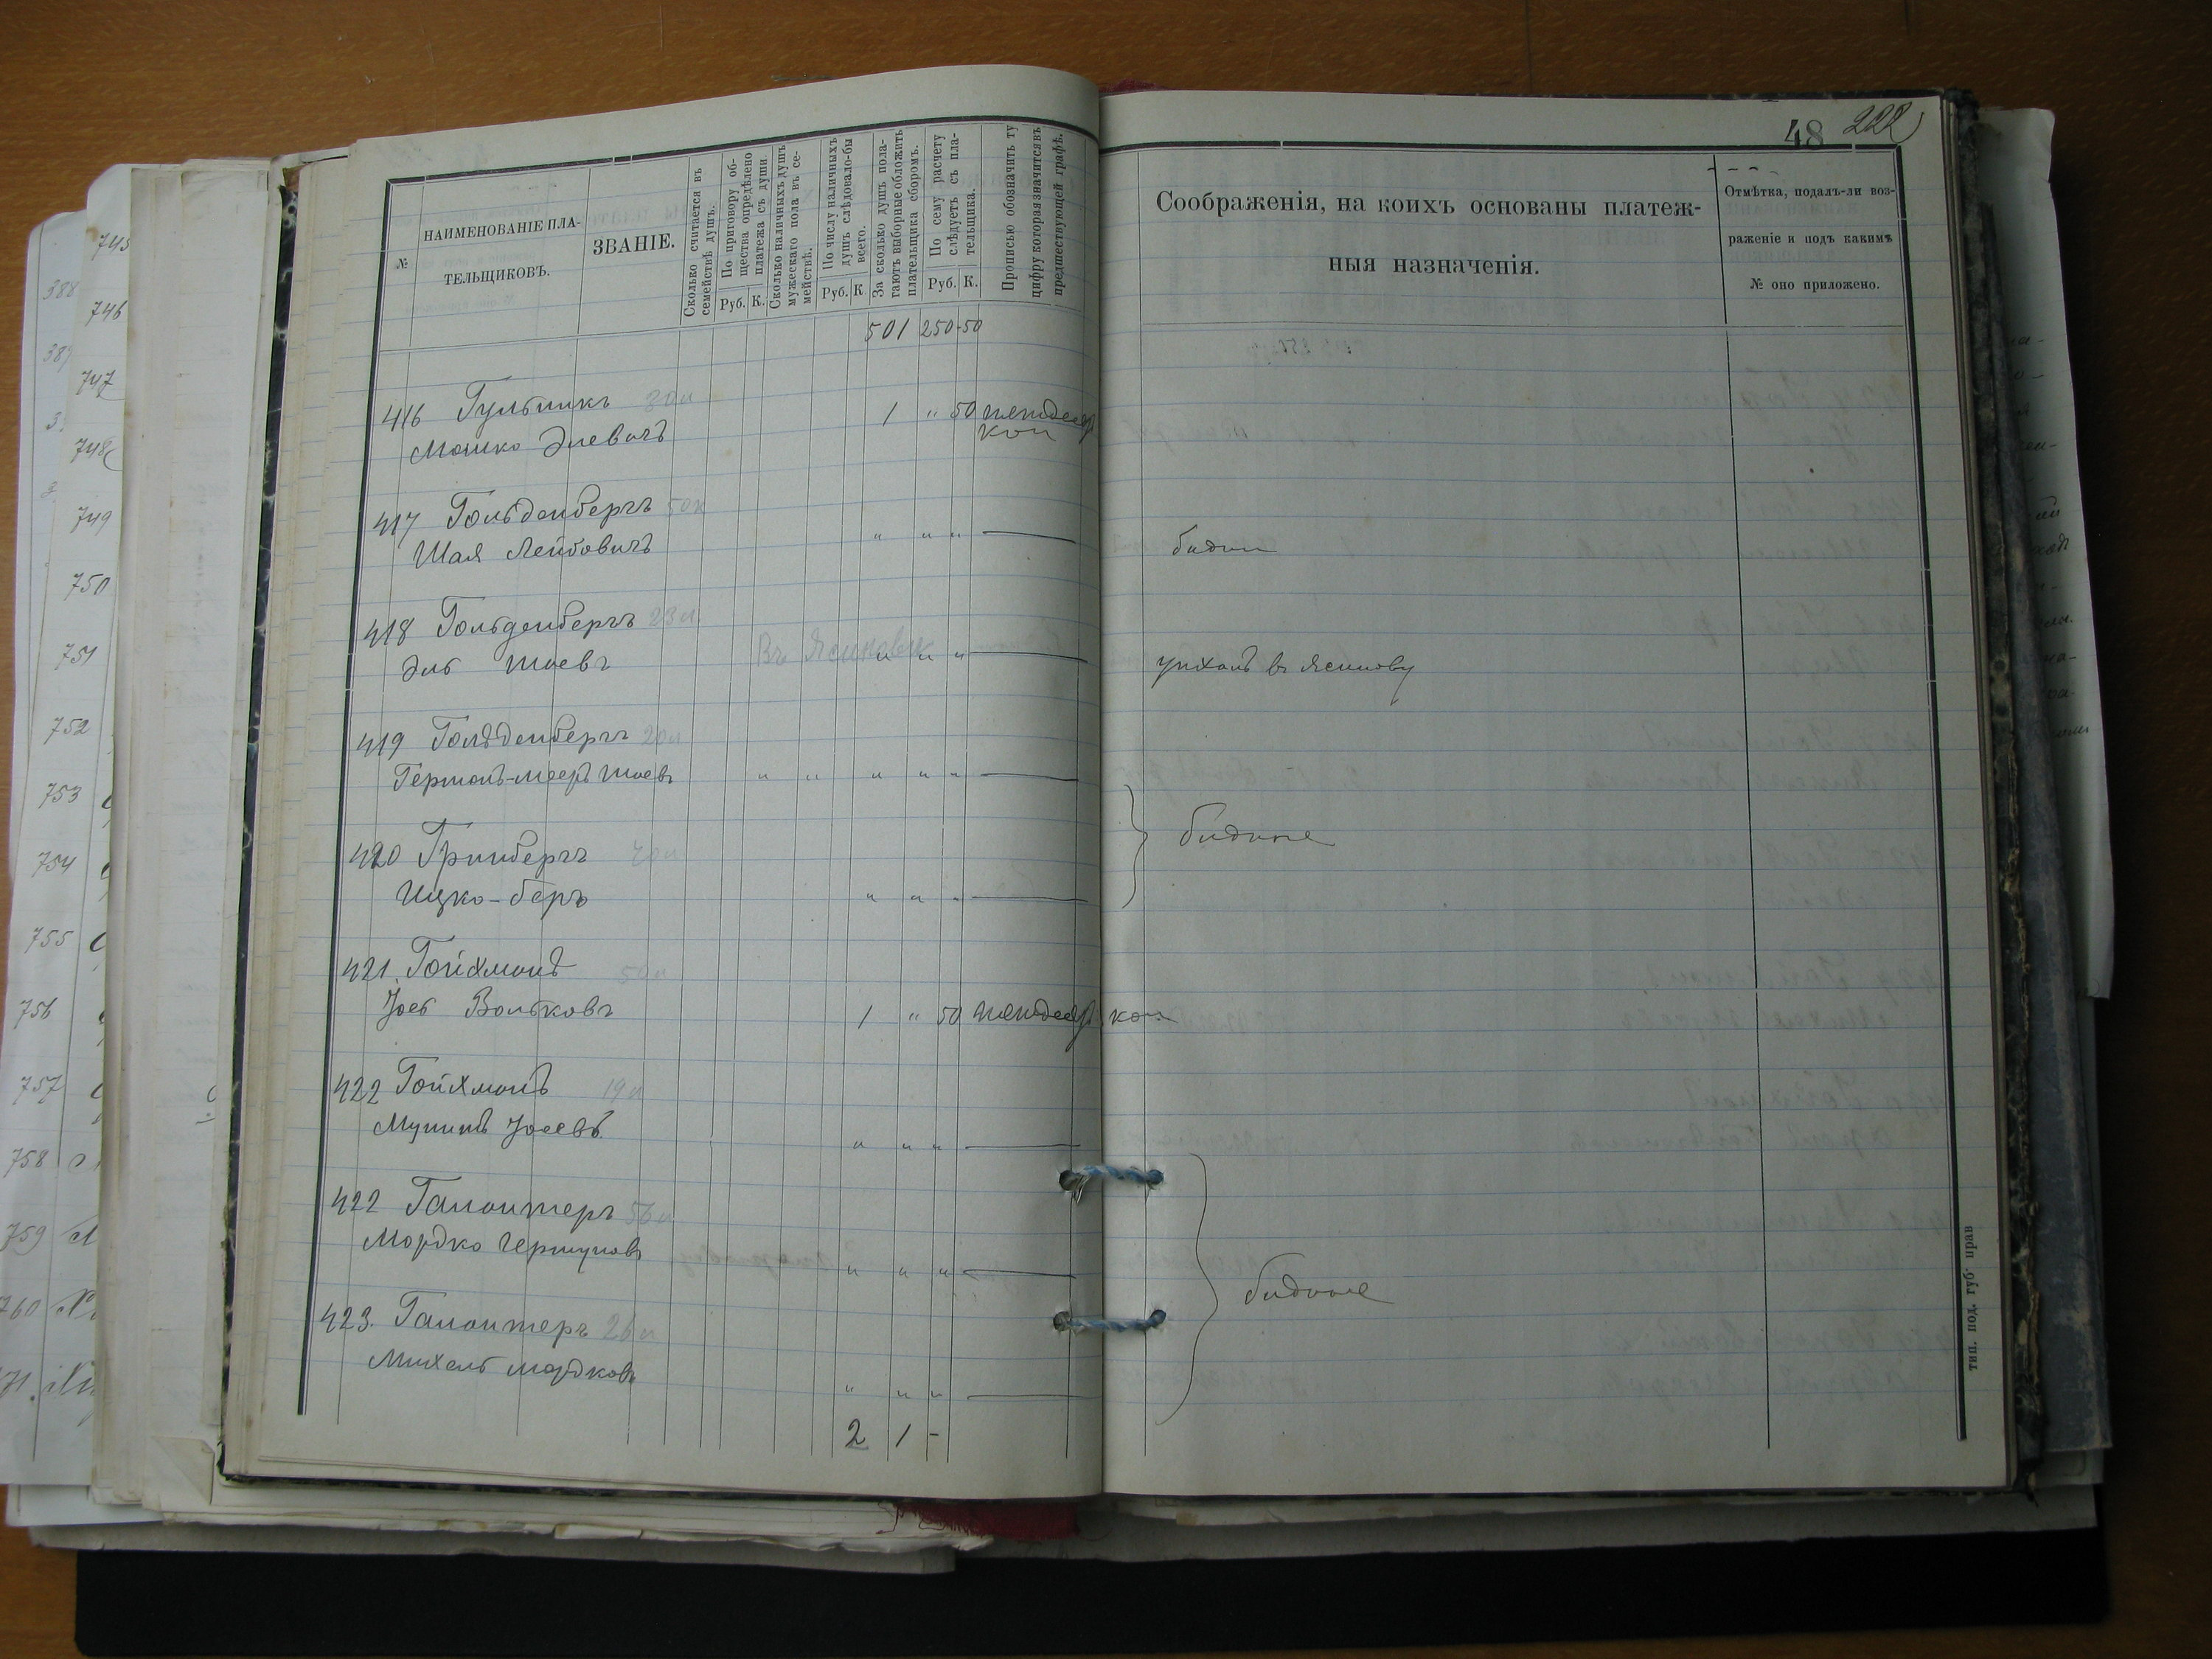 48 222
№
НАИМЕНОВАНІЕ ПЛА-
ТЕЛЬЩИКОВЪ.
ЗВАНІЕ.
Сколько считается въ
семействѣ душъ.
По приговору об-
щества опредѣлено
платежа съ души
Руб. К.
Сколько наличныхъ душъ
мужескаго пола въ се-
мействѣ.
По числу наличныхъ
душъ слѣдовало-бы
всего.
Руб. К
За сколько душъ пола-
гаютъ выборные обложить
плательщика сборомъ.
По сему расчету
слѣдуетъ съ пла-
тельщика.
Руб. К.
Прописью обозначить ту
цифру которая значится въ
предшествующей графѣ.
Соображенія, на коихъ основаны платеж-
ныя назначенія.
Отмѣтка, подалъ-ли воз-
раженіе и подъ какимъ
№ оно приложено.
501 250-50
416 Гульникъ 30л
Мошко Элевичъ 1 " 50 пятьдесят
коп
417 Гольденбергъ 50л
Шая Лейбовичъ " " " бѣдн
418 Гольденбергъ 23л
Въ Ясиновѣ
Эль Шаевъ " " " уѣхалъ въ Ясинову
419 Гольденбергъ 20л
Герман-Меер Шаевъ " " " " "
бѣдные
420 Гринбергъ 40л
Ицко-Беръ " " "
421. Гойхманъ 50л
Іось Вольковъ 1 " 50 пятьдесят коп.
422 Гойхманъ 19л
Іосевъ " " "
422 Галантеръ 56л
Мордко Гершуновъ " " "
бѣдные
423. Галантеръ 26л
Михель Мордковъ " " "
2 1 -
тип. под. губ. прав
745
746
747
748
749
750
751
752
753
754
755
756
757
758
759
760
388